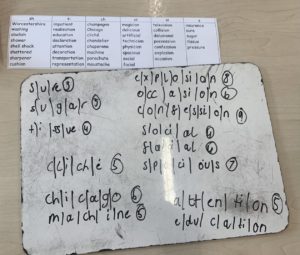 Worcestershire impatient champagne magician television assurance
washing realisation Chicago delicious collision
selfish education cliché artificial
shower declaration chandelier technician possession
shell shock attention chaperone physician explosion
shattered decoration machine special confession
sharpener transportation parachute social occasion pressure
cushion representation moustache facial
s/u/r/e 3
s/u/g/a/r 5
ti/ss/ue 4
c/l/i/ch/é 5
ch/i/c/a/g/o 6
m/a/ch/i/n/e 5
e/x/p/l/o/si/o/n 8
o/cc/a/si/o/n 6
c/o/n/f/e/ss/i/o/n 9
s/o/ci/al 6
f/a/ci/al 6
s/p/a/ci/ou/s 7
a/tt/en/ti/on 5
e/du/c/a/ti/on